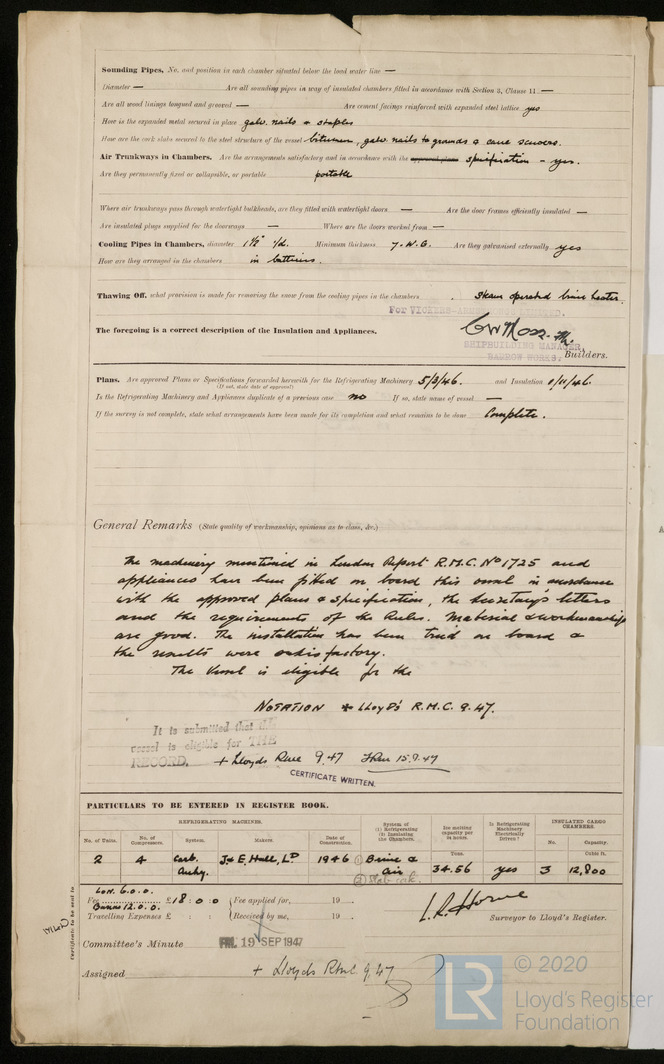 Sounding Pipes, No. and position in each chamber situated below the load water line —
Diameter — Are all sounding pipes in way of insulated chambers fitted in accordance with Section 3, Clause 11 —
Are all wood linings tongued and grooved — Are cement facings reinforced with expanded steel lattice yes
How is the expanded metal secured in place galv. nails & staples
How are the cork slabs secured to the steel structure of the vessel bitumen, galv. nails to grounds & cane skewers.
Air Trunkways in Chambers. Are the arrangements satisfactory and in accordance with the approved plans specification - yes.
Are they permanently fixed or collapsible, or portable portable
Where air trunkways pass through watertight bulkheads, are they fitted with watertight doors — Are the door frames efficiently insulated —
Are insulated plugs supplied for the doorways — Where are the doors worked from —
Cooling Pipes in Chambers, diameter 1½" i/d. Minimum thickness 7.W.G. Are they galvanised externally yes
How are they arranged in the chambers in batteries.
Thawing Off, what provision is made for removing the snow from the cooling pipes in the chambers steam operated brine heater.
For VICKERS-ARMSTRONGS LIMITED.
The foregoing is a correct description of the Insulation and Appliances.
SHIPBUILDING MANAGER,
BARROW WORKS. Builders.
Plans. Are approved Plans or Specifications forwarded herewith for the Refrigerating Machinery 5/3/46. and Insulation 1/11/46.
(If not, state date of approval)
Is the Refrigerating Machinery and Appliances duplicate of a previous case no If so, state name of vessel —
If the survey is not complete, state what arrangements have been made for its completion and what remains to be done Complete.
General Remarks (State quality of workmanship, opinions as to class, &c.)
The machinery mentioned in London Report R.M.C. No 1725 and
appliances have been fitted on board this vessel in accordance
with the approved plans & specification, the Secretary's letters
and the requirements of the Rules. Material & workmanship
are good. The installation has been tried on board &
the results were satisfactory.
The vessel is eligible for the
NOTATION + Lloyd's R.M.C. 9.47.
It is submitted that this
vessel is eligible for THE
RECORD. + Lloyds RMC 9.47 15.9.47
CERTIFICATE WRITTEN.
PARTICULARS TO BE ENTERED IN REGISTER BOOK.
REFRIGERATING MACHINES. System of (1) Refrigerating (2) Insulating the Chambers. Ice melting capacity per 24 hours. Is Refrigerating Machinery Electrically Driven? INSULATED CARGO CHAMBERS.
No. of Units. No. of Compressors. System. Makers. Date of Construction. Tons. No. Capacity. Cubic ft.
2 4 Carb. Anhy. J & E. Hall, Ld 1946 (1) Brine & Air (2) Slab cork. 34.56 yes 3 12,800
Lon. 6.0.0.
Fee Barrow 12.0.0. £18:0:0 Fee applied for, 19
Travelling Expenses £ : : Received by me, 19
Surveyor to Lloyd's Register.
Certificate to be sent to
Committee's Minute FRI. 19 SEP 1947
Assigned + Lloyds RMC 9.47
LR
© 2020
Lloyd's Register
Foundation